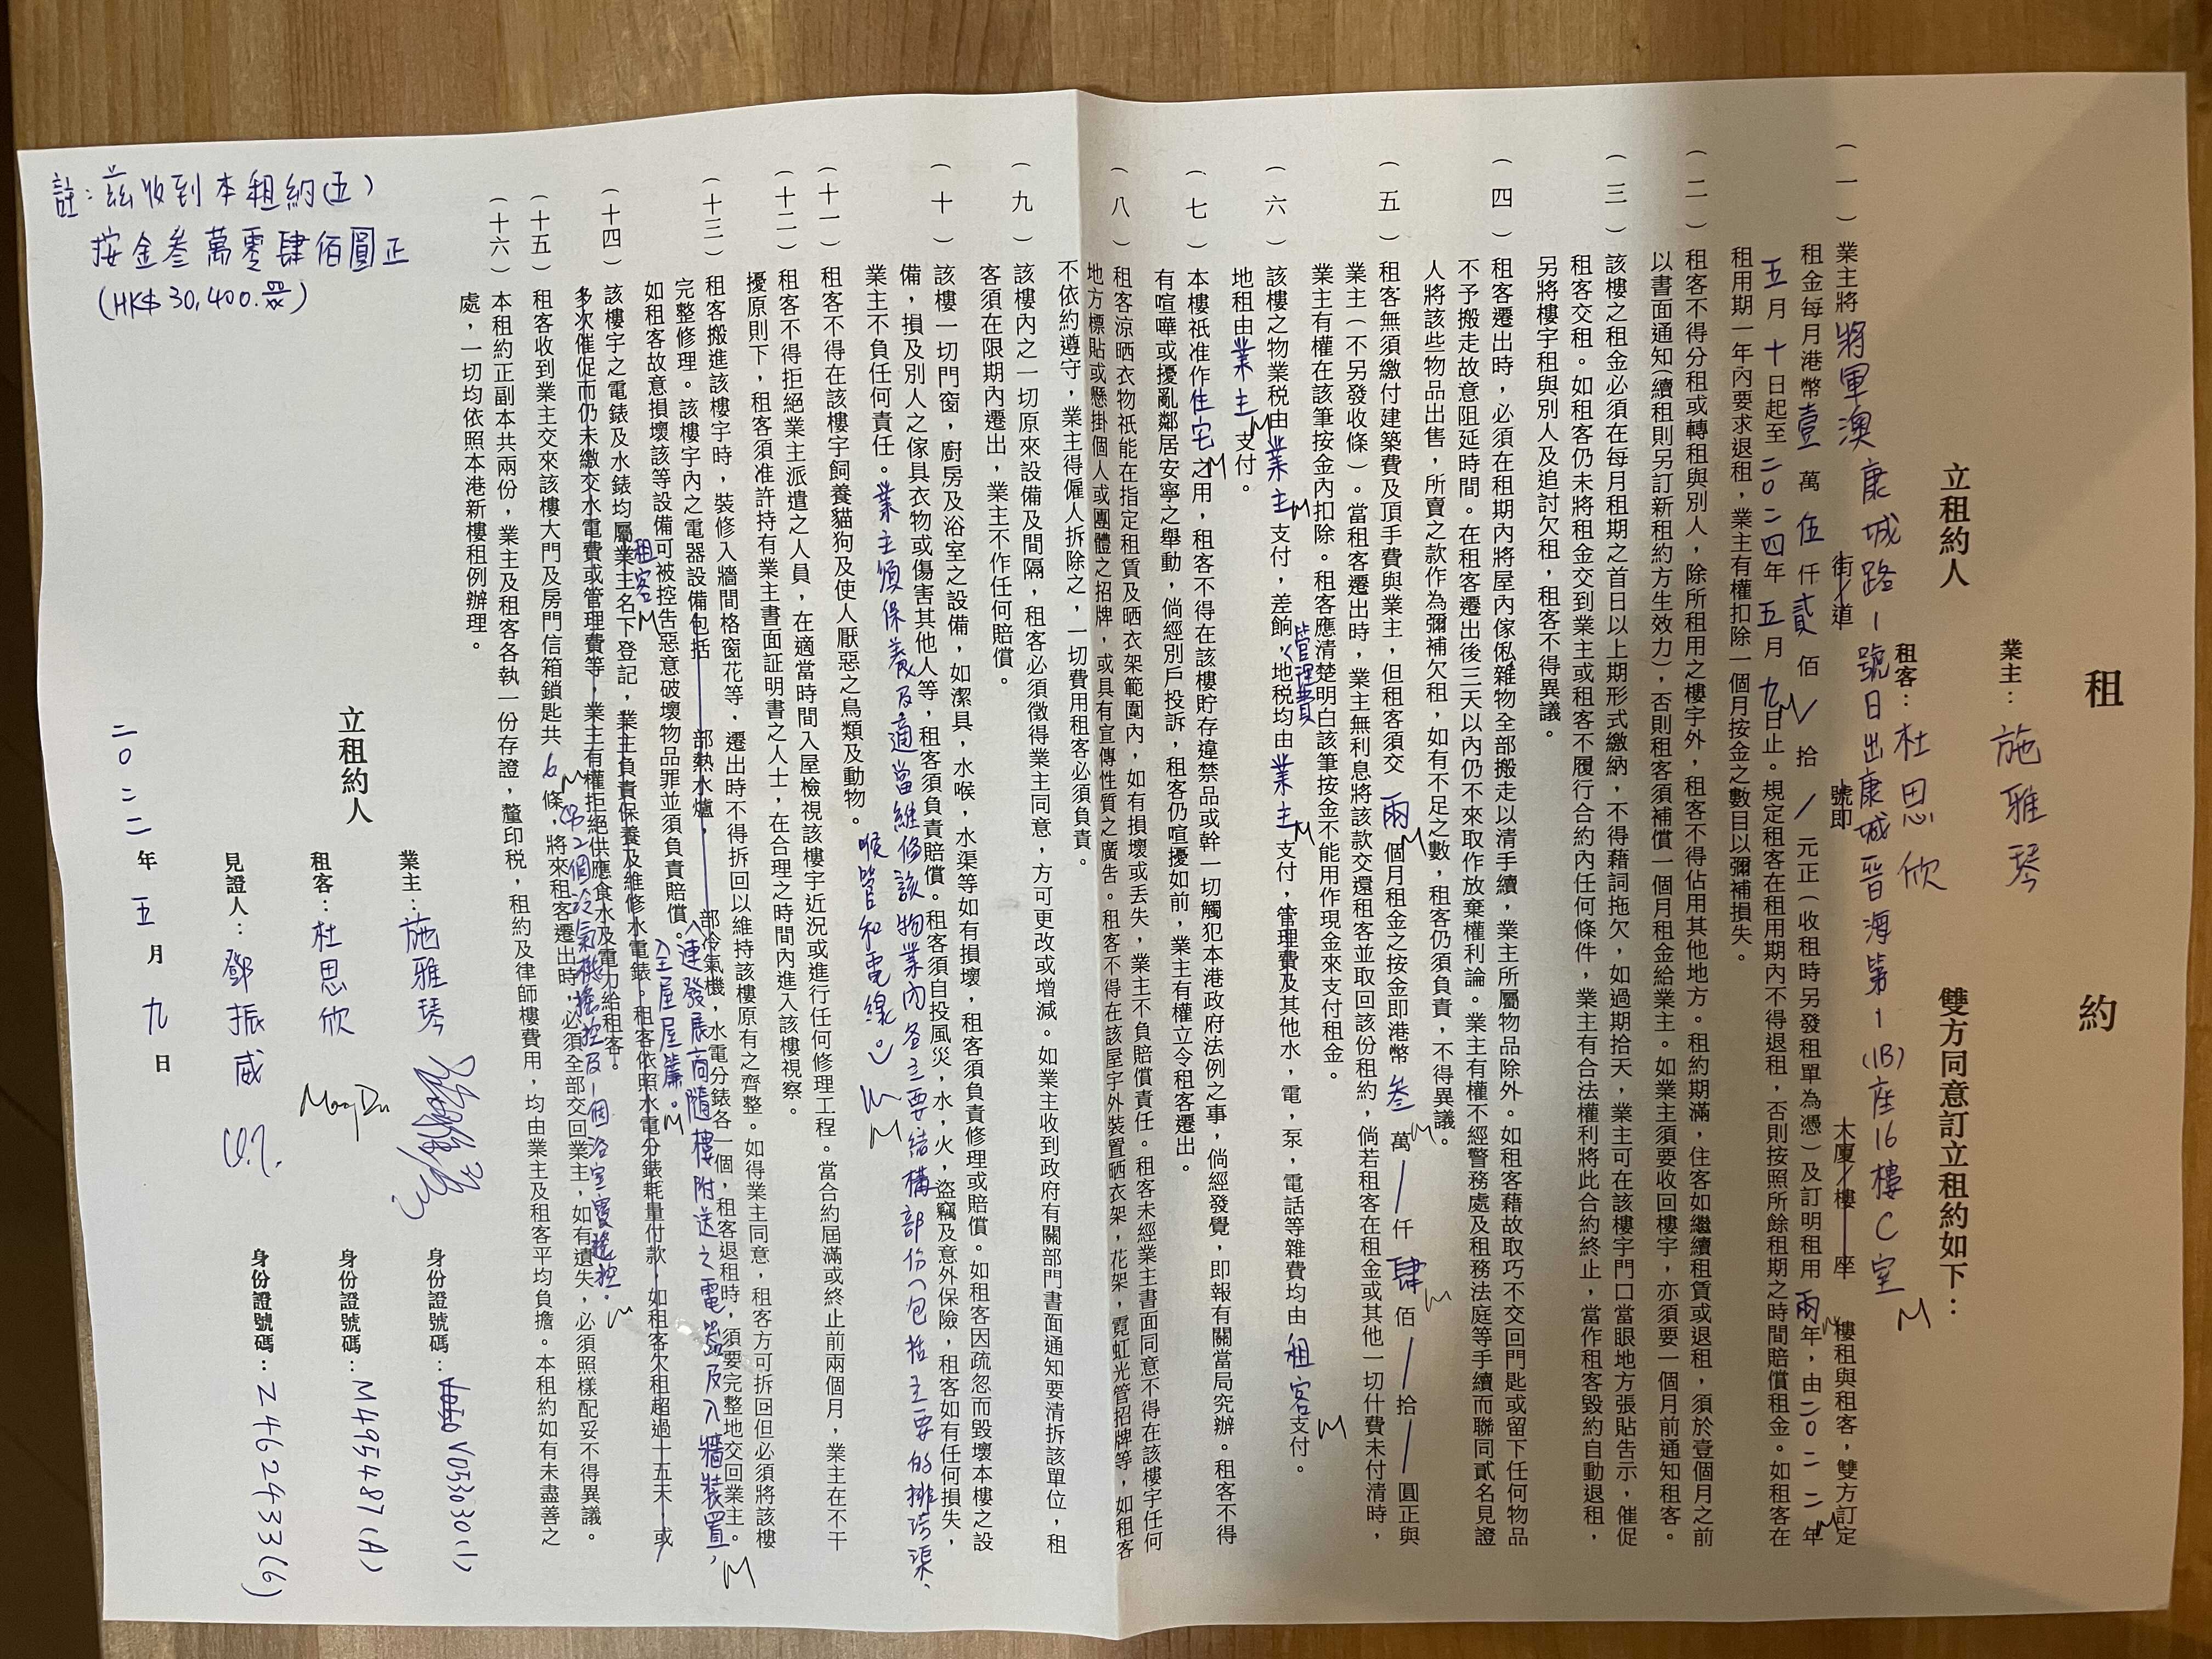 租約
業主：施雅琴
立租約人 雙方同意訂立租約如下：
租客：杜思欣
將軍澳康城路1號日出康城晉海第1(1B)座16樓C室
（一）業主將 街/道 號即 大廈/樓 座 樓租與租客，雙方訂定
租金每月港幣壹萬伍仟貳佰/拾/元正（收租時另發租單為憑）及訂明租用兩年，由二〇二二年
五月十日起至二〇二四年五月九日止。規定租客在租用期內不得退租，否則按照所餘租期之時間賠償租金。如租客在
租用期一年內要求退租，業主有權扣除一個月按金之數目以彌補損失。
（二）租客不得分租或轉租與別人，除所租用之樓宇外，租客不得佔用其他地方。租約期滿，住客如繼續租賃或退租，須於壹個月之前
以書面通知（續租則另訂新租約方生效力），否則租客須補償一個月租金給業主。如業主須要收回樓宇，亦須要一個月前通知租客。
（三）該樓之租金必須在每月租期之首日以上期形式繳納，不得藉詞拖欠，如過期拾天，業主可在該樓宇門口當眼地方張貼告示，催促
租客交租。如租客仍未將租金交到業主或租客不履行合約內任何條件，業主有合法權利將此合約終止，當作租客毀約自動退租，
另將樓宇租與別人及追討欠租，租客不得異議。
（四）租客遷出時，必須在租期內將屋內傢俬雜物全部搬走以清手續，業主所屬物品除外。如租客藉故取巧不交回門匙或留下任何物品
不予搬走故意阻延時間。在租客遷出後三天以內仍不來取作放棄權利論。業主有權不經警務處及租務法庭等手續而聯同貳名見證
人將該些物品出售，所賣之款作為彌補欠租，如有不足之數，租客仍須負責，不得異議。
（五）租客無須繳付建築費及頂手費與業主，但租客須交兩個月租金之按金即港幣叁萬/仟肆佰/拾/圓正與
業主（不另發收條）。當租客遷出時，業主無利息將該款交還租客並取回該份租約，倘若租客在租金或其他一切什費未付清時，
業主有權在該筆按金內扣除。租客應清楚明白該筆按金不能用作現金來支付租金。
（六）該樓之物業稅由業主支付，差餉、管理費地稅均由業主支付，管理費及其他水，電，泵，電話等雜費均由租客支付。
地租由業主支付。
（七）本樓祇准作住宅之用，租客不得在該樓貯存違禁品或幹一切觸犯本港政府法例之事，倘經發覺，即報有關當局究辦。租客不得
有喧嘩或擾亂鄰居安寧之舉動，倘經別戶投訴，租客仍喧擾如前，業主有權立令租客遷出。
（八）租客涼晒衣物祇能在指定租賃及晒衣架範圍內，如有損壞或丟失，業主不負賠償責任。租客未經業主書面同意不得在該樓宇任何
地方標貼或懸掛個人或團體之招牌，或具有宣傳性質之廣告。租客不得在該屋宇外裝置晒衣架，花架，霓虹光管招牌等，如租客
不依約遵守，業主得僱人拆除之，一切費用租客必須負責。
（九）該樓內之一切原來設備及間隔，租客必須徵得業主同意，方可更改或增減。如業主收到政府有關部門書面通知要清拆該單位，租
客須在限期內遷出，業主不作任何賠償。
（十）該樓一切門窗，廚房及浴室之設備，如潔具，水喉，水渠等如有損壞，租客須負責修理或賠償。如租客因疏忽而毀壞本樓之設
備，損及別人之傢具衣物或傷害其他人等，租客須負責賠償。租客須自投風災，水，火，盜竊及意外保險，租客如有任何損失，
業主不負任何責任。業主須保養及適當維修該物業內各主要結構部份（包括主要的排污渠、
喉管和電線。）
（十一）租客不得在該樓宇飼養貓狗及使人厭惡之鳥類及動物。
（十二）租客不得拒絕業主派遣之人員，在適當時間入屋檢視該樓宇近況或進行任何修理工程。當合約屆滿或終止前兩個月，業主在不干
擾原則下，租客須准許持有業主書面証明書之人士，在合理之時間內進入該樓視察。
（十三）租客搬進該樓宇時，裝修入牆間格窗花等，遷出時不得拆回以維持該樓原有之齊整。如得業主同意，租客方可拆回但必須將該樓
完整修理。該樓宇內之電器設備包括 部熱水爐， 部冷氣機，水電分錶各一個，租客退租時，須要完整地交回業主。
連發展商隨樓附送之電器及入牆裝置，
全屋屋簾。
如租客故意損壞該等設備可被控告惡意破壞物品罪並須負責賠償。
租客
（十四）該樓宇之電錶及水錶均屬業主名下登記，業主負責保養及維修水電錶。租客依照水電分錶耗量付款，如租客欠租超過十五天，或
多次催促而仍未繳交水電費或管理費等，業主有權拒絕供應食水及電力給租客。
（十五）租客收到業主交來該樓大門及房門信箱鎖匙共6條，將來租客遷出時，必須全部交回業主，如有遺失，必須照樣配妥不得異議。
2個冷氣機搖控及1個浴室寶搖控。
（十六）本租約正副本共兩份，業主及租客各執一份存證，釐印稅，租約及律師樓費用，均由業主及租客平均負擔。本租約如有未盡善之
處，一切均依照本港新樓租例辦理。
業主：施雅琴 身份證號碼：V053030(1)
立租約人
租客：杜思欣 身份證號碼：M495487(A)
見證人：鄧振威 身份證號碼：Z462433(6)
二〇二二年五月九日
註：茲收到本租約(五)
按金叁萬零肆佰圓正
(HK$30,400.)